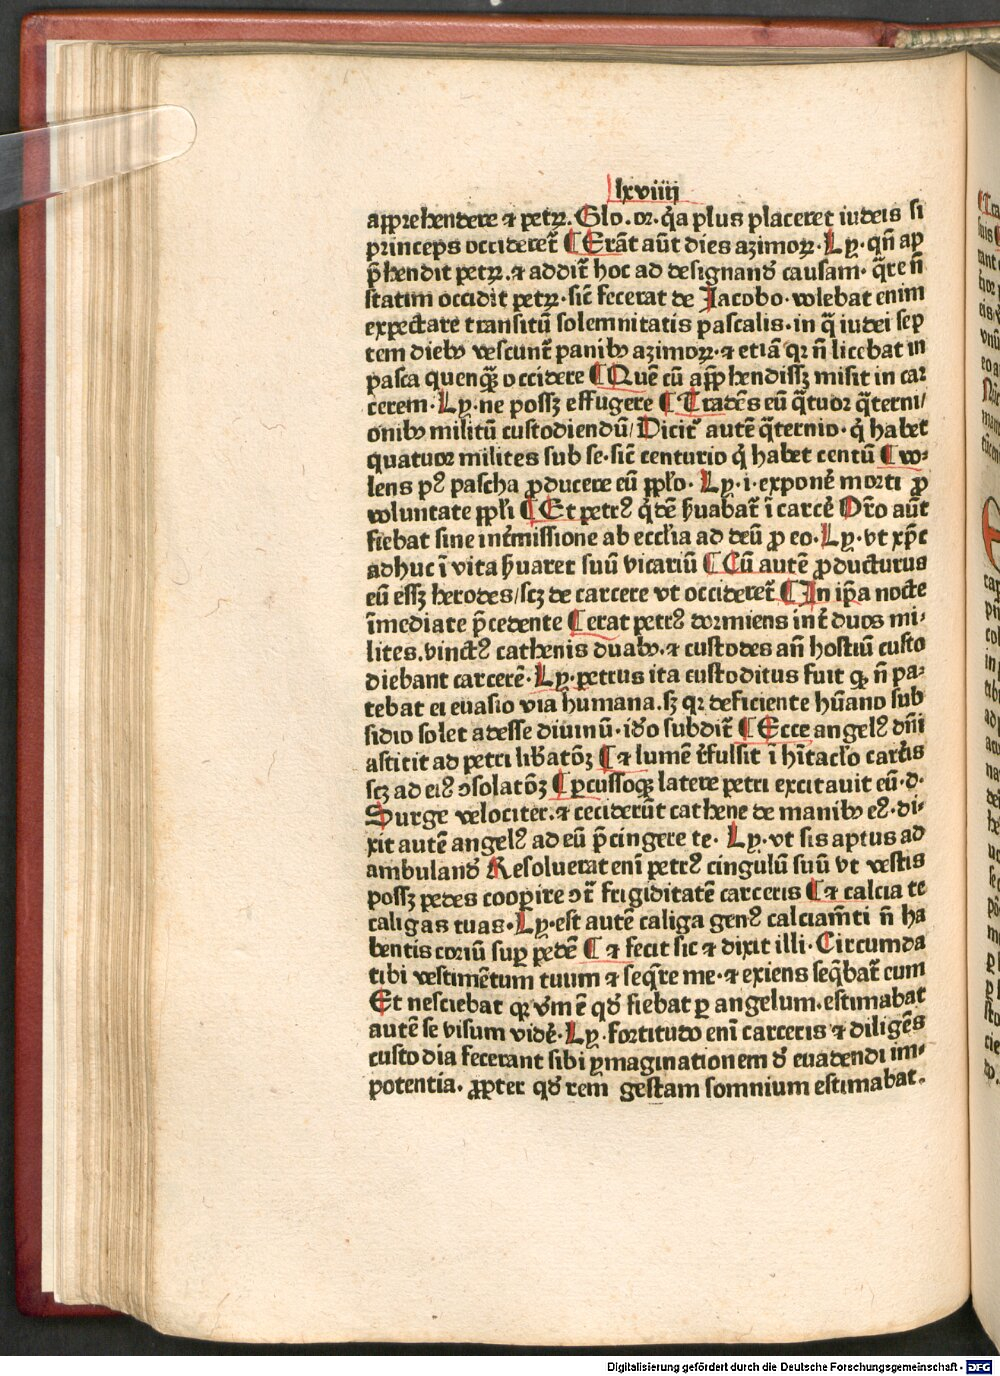 lxviiij
apprehendere ⁊ petrꝝ. Glo. or. q̇a plus placeret iudeis si
princeps occideret̃ ¶ Erãt aũt dies azimoꝝ. Ly. qñ ap
p̃hendit petrꝝ. ⁊ addit̃ hoc ad designanđ causam. q̃re ñ
statim occidit petrꝝ. sic̃ fecerat de Jacobo. volebat enim
expectare transitũ solemnitatis pascalis. in q̃ iudei sep
tem diebꝰ vescunt̃ panibꝰ azimoꝝ. ⁊ etiã qꝛ ñ licebat in
pasca quenqᷓꝫ occidere ¶ Quẽ cũ app̃hendissꝫ misit in car
cerem. Ly. ne possꝫ effugere ¶ Tradẽs eũ q̃tuor q̃terni/
onibꝰ militũ custodiendũ/ Dicit̃ autẽ q̃ternio. q̇ habet
quatuor milites sub se. sic̃ centurio q̇ habet centũ ¶ vo⸗
lens pꝰ pascha ꝓducere eũ ppl̃o. Ly. i. exponẽ morti ꝓ
voluntate ppl̃i ¶ Et petrꝰ q̇dẽ ẜuabat̃ ĩ carcẽ Or̃o aũt
fiebat sine int̃missione ab eccl̃ia ad deũ ꝓ eo. Ly. vt xp̃c
adhuc ĩ vita ẜuaret suũ vicariũ ¶ Cũ autẽ ꝓducturus
eũ essꝫ herodes/ scꝫ de carcere vt occideret̃ ¶ In ip̃a nocte
ĩmediate p̃cedente ¶ erat petrꝰ dormiens int̃ duos mi⸗
lites. vinctꝰ cathenis duabꝰ. ⁊ custodes añ hostiũ custo
diebant carcerẽ. Ly. petrus ita custoditus fuit qꝙ ñ pa⸗
tebat ei euasio via humana. sꝫ qꝛ deficiente hũano sub
sidio solet adesse diuinũ. iđo subdit̃ ¶ Ecce angelꝰ dñi
astitit ad petri lib̃atõꝫ ¶ ⁊ lumẽ r̃fulsit ĩ hĩtacl̃o carc̃is
scꝫ ad eiꝰ ɔsolatõꝫ ¶ ꝑcussoqꝫ latere petri excitauit eũ. d.
Surge velociter. ⁊ cecider̃ut cathene de manibꝰ eꝰ. di⸗
xit autẽ angelꝰ ad eũ p̃cingere te. Ly. vt sis aptus ad
ambulanđ Resoluerat enĩ petrꝰ cingulũ suũ vt vestis
possꝫ pedes cooꝑire ɔt̃ frigiditatẽ carceris ¶ ⁊ calcia te
caligas tuas. Ly. est autẽ caliga genꝰ calciam̃ti ñ ha
bentis coriũ suꝑ pedẽ ¶ ⁊ fecit sic ⁊ dixit illi. Circumda
tibi vestimẽtum tuum ⁊ seq̃re me. ⁊ exiens seq̃bat̃ cum
Et nesciebat qꝛ vm̃ ẽ qđ fiebat ꝑ angelum. estimabat
autẽ se visum vidẽ. Ly. fortitudo enĩ carceris ⁊ diligẽs
custodia fecerant sibi ymaginationem đ euadendi im⸗
potentia. ꝓpter qđ rem gestam somnium estimabat.
Digitalisierung gefördert durch die Deutsche Forschungsgemeinschaft - DFG